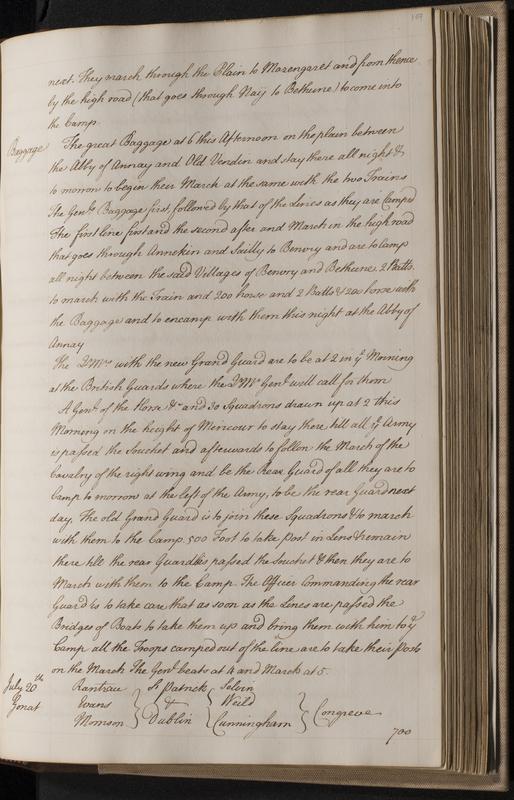 109
next. They march through the Plain to Mazengaret and from thence
by the high road (that goes through Naij to Bethune) to come into
the Camp.
Baggage The great Baggage at 6 this Afternoon on the plain between
the Abby of Annay and Old Vendin and stay there all night &
to morrow to begin their March at the same with the two Trains
The Genls. Baggage first, followed by that of the Lines as they are Camp'd
The first Line first and the second after and March in the high road
that goes through Annekin and Sailly to Benvry and are to Camp
all night between the said Villages of Benvry and Bethune 2 Batts.
to march with the Train and 200 horse and 2 Batts & 200 horse with
the Baggage and to encamp with them this night at the Abby of
Annay
The Qr. Mrs. with the new Grand Guard are to be at 2 in ye Morning
at the British Guards where the Qr. Mr. Genl. will call for them
A Genl. of the Horse &c and 30 Squadrons drawn up at 2 this
Morning on the height of Mericour to stay there till all ye Army
is passed the Souchet and afterwards to follow the March of the
Cavalry of the right wing and be the Rear Guard of all they are to
Camp to morrow at the left of the Army, to be the rear Guard next
day. The old Grand Guard is to join these Squadrons & to march
with them to the Camp. 500 Foot to take Post in Lens & remain
there till the rear Guard is passed the Souchet & then they are to
March with them to the Camp The Officer Commanding the rear
Guard is to take care that as soon as the Lines are passed the
Bridges of Boats to take them up and bring them with him to ye
Camp all the Troops camped out of the line are to take their Posts
on the March The Genl. beats at 4 and March at 5.
July 20th Rantzau } St. Patrick { Selvin
Gonat Evans } & { Weild } Congreve
Morrison } Dublin { Cunningham
700